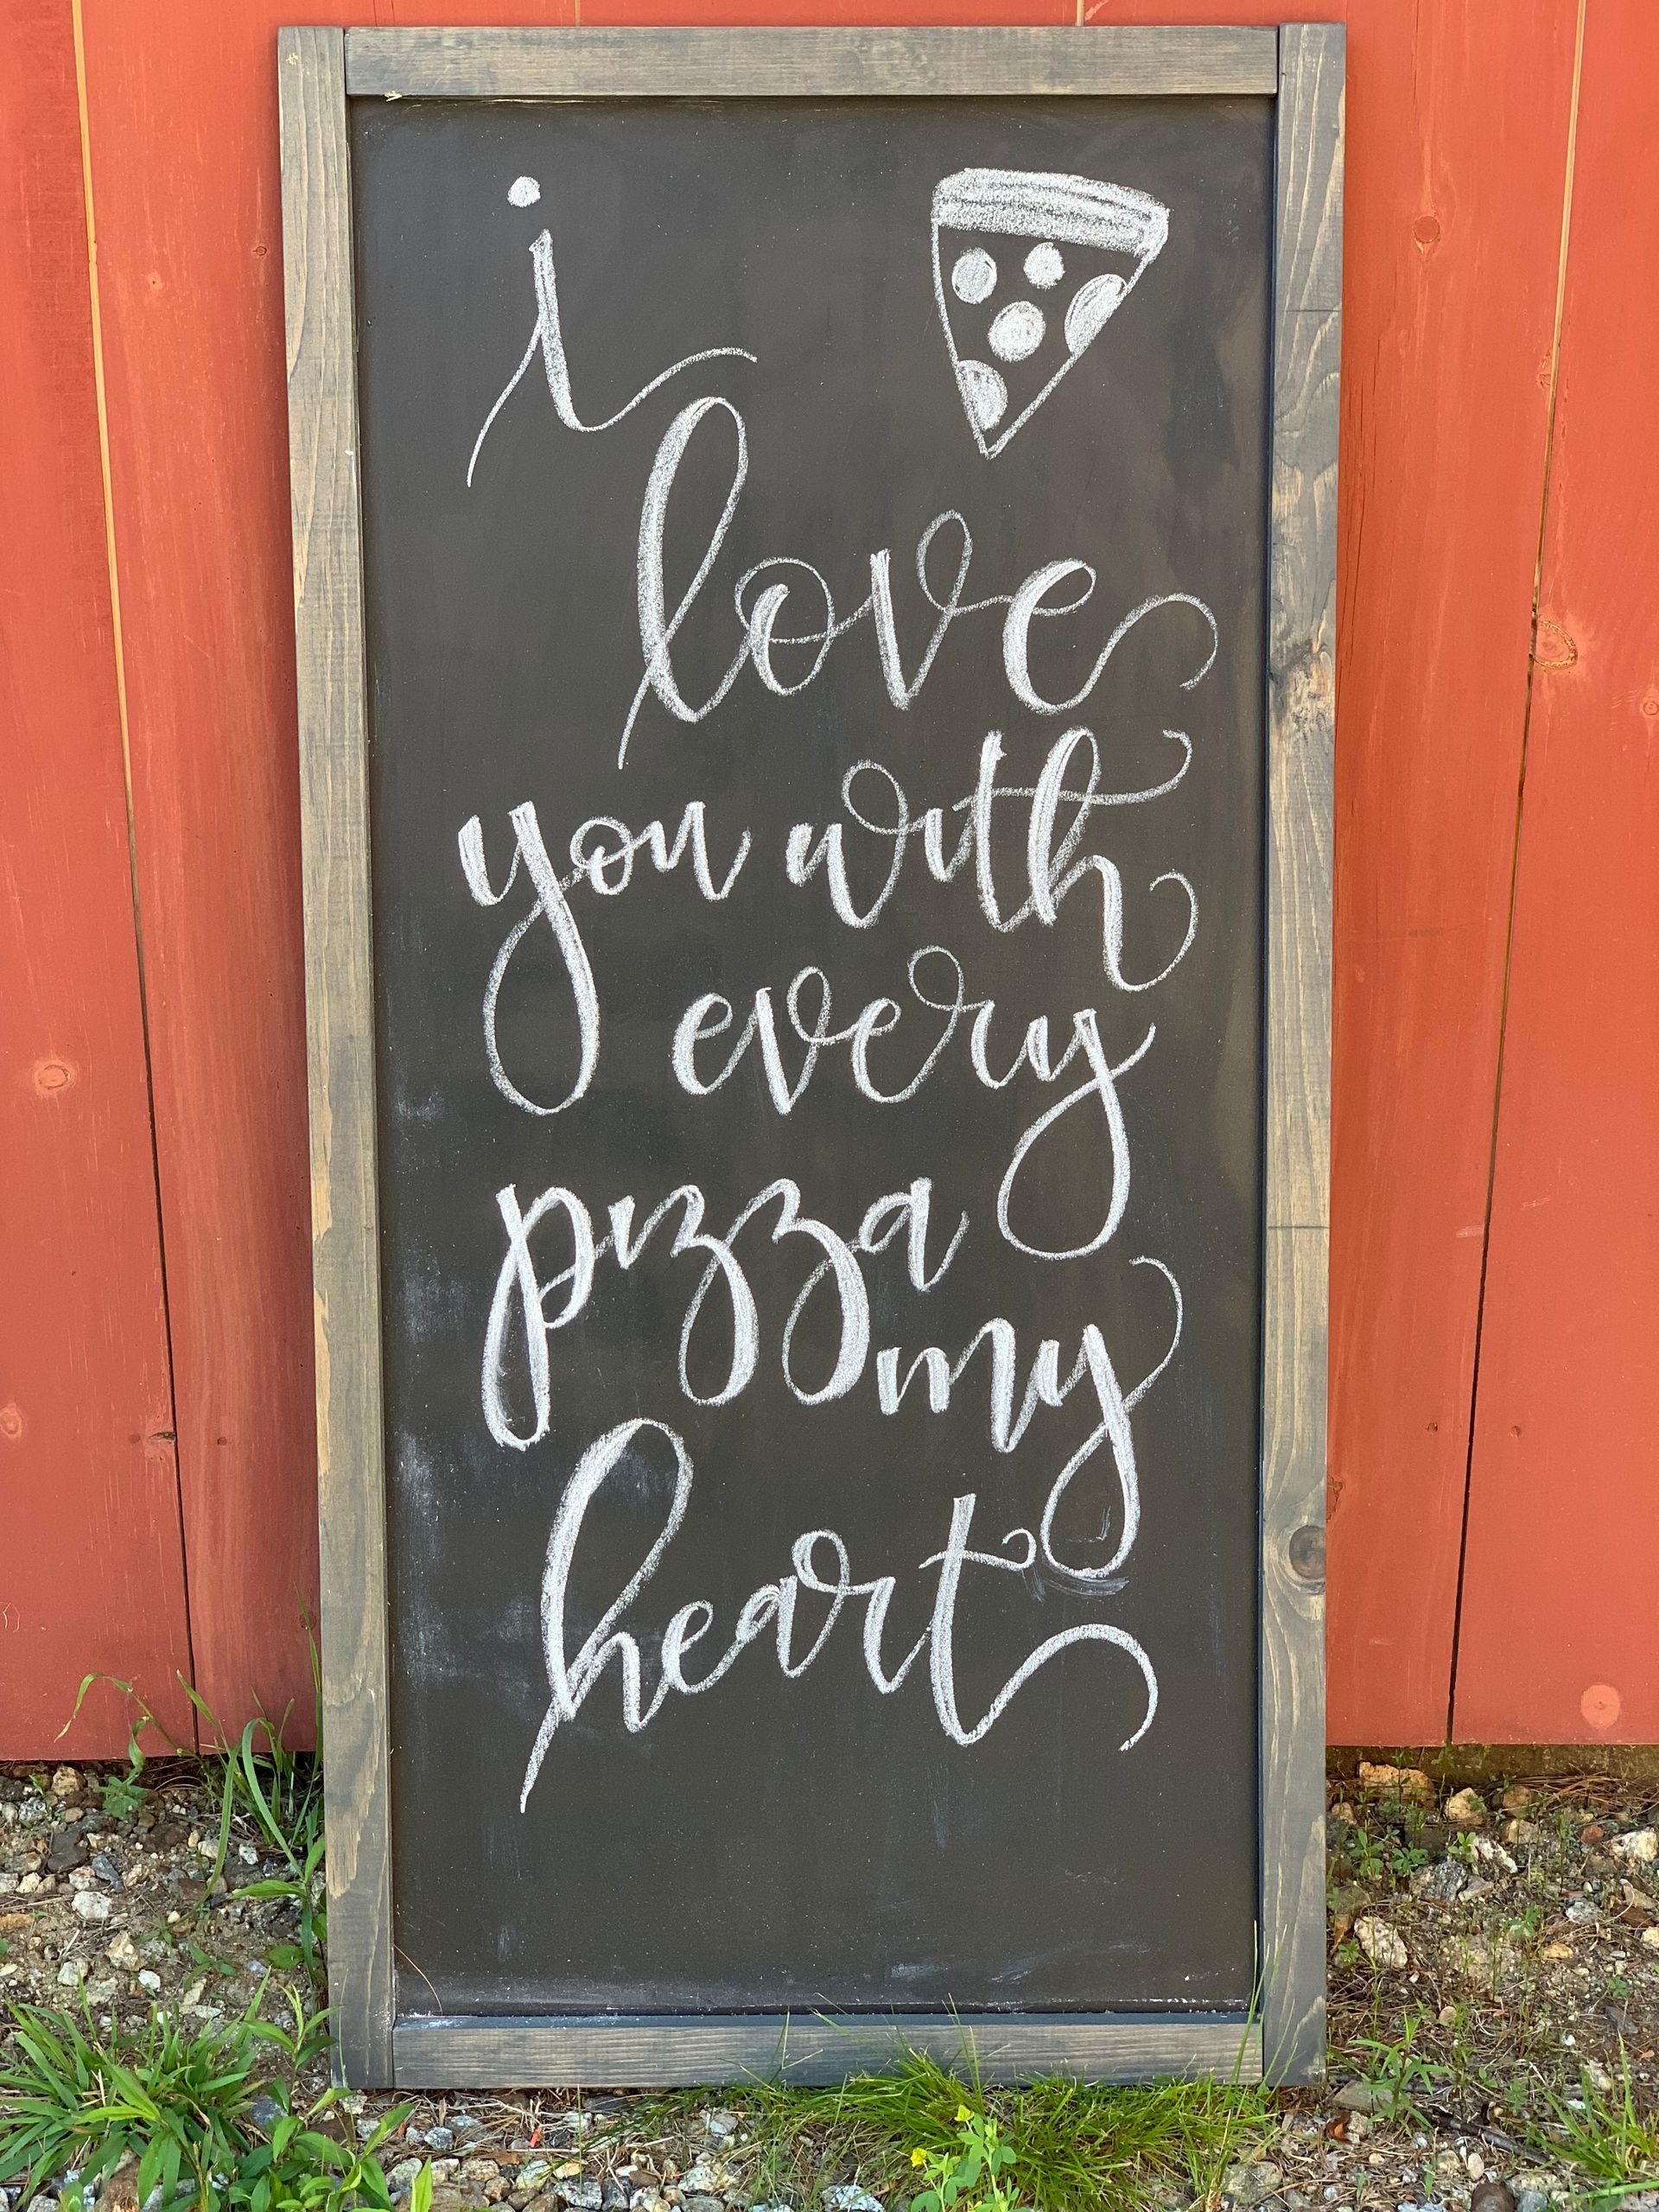 i
love
you with
every
pizza
my
heart